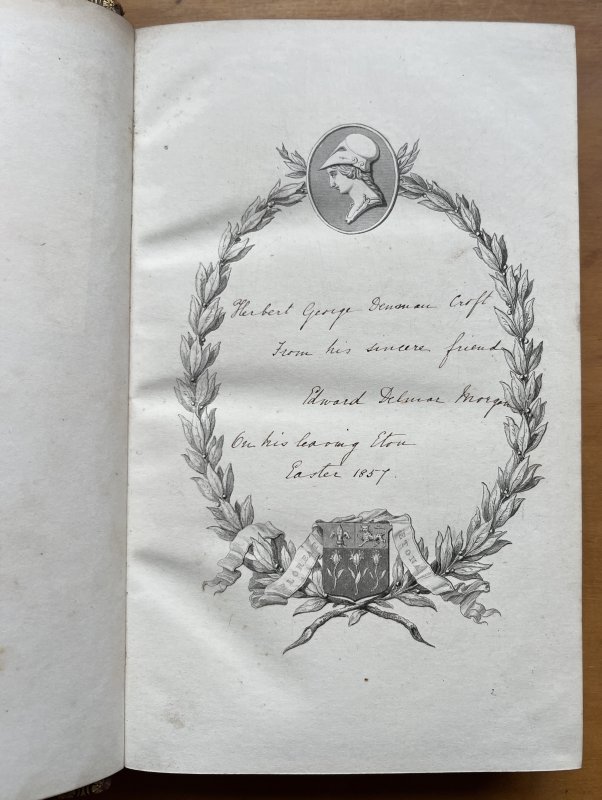 Herbert George Denman Croft
From his sincere friend
Edward Delmar Morgan
On his leaving Eton
Easter 1857.
FLOREAT ETONA
2